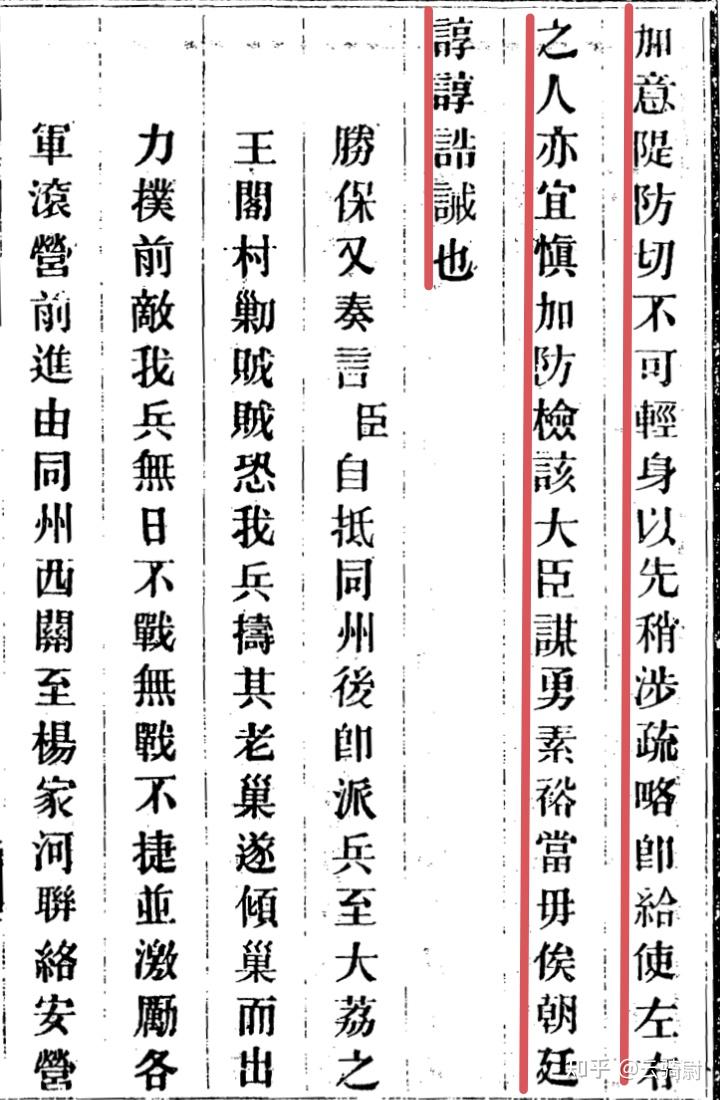 加意隄防切不可輕身以先稍涉疏略卽給使左右
之人亦宜愼加防檢該大臣謀勇素裕當毋俟朝廷
諄諄誥誡也
勝保又奏言臣自抵同州後卽派兵至大荔之
王閣村勦賊賊恐我兵擣其老巢遂傾巢而出
力撲前敵我兵無日不戰無戰不捷並激勵各
軍滾營前進由同州西關至楊家河聯絡安營
知乎 @云骑尉